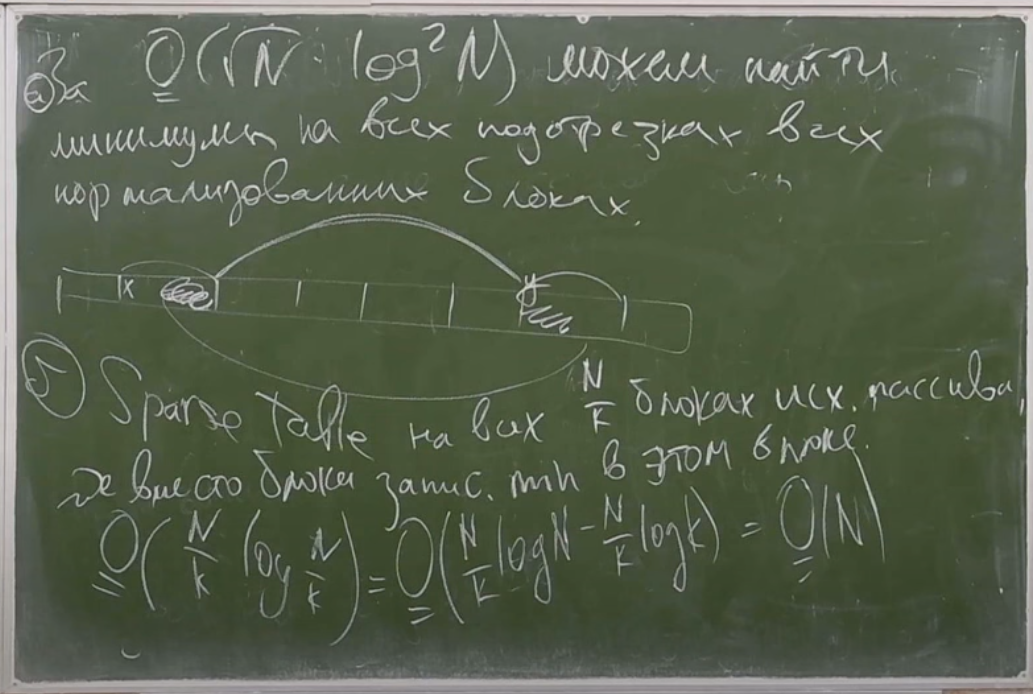 а) За O(√N · log² N) можем найти
минимумы на всех подотрезках всех
нормализованных блоках.
x y
б) Sparse Table на всех N/k блоках исх. массива,
где вместо блока запис. min в этом блоке.
O(N/k log N/k) = O(N/k log N - N/k log k) = O(N)